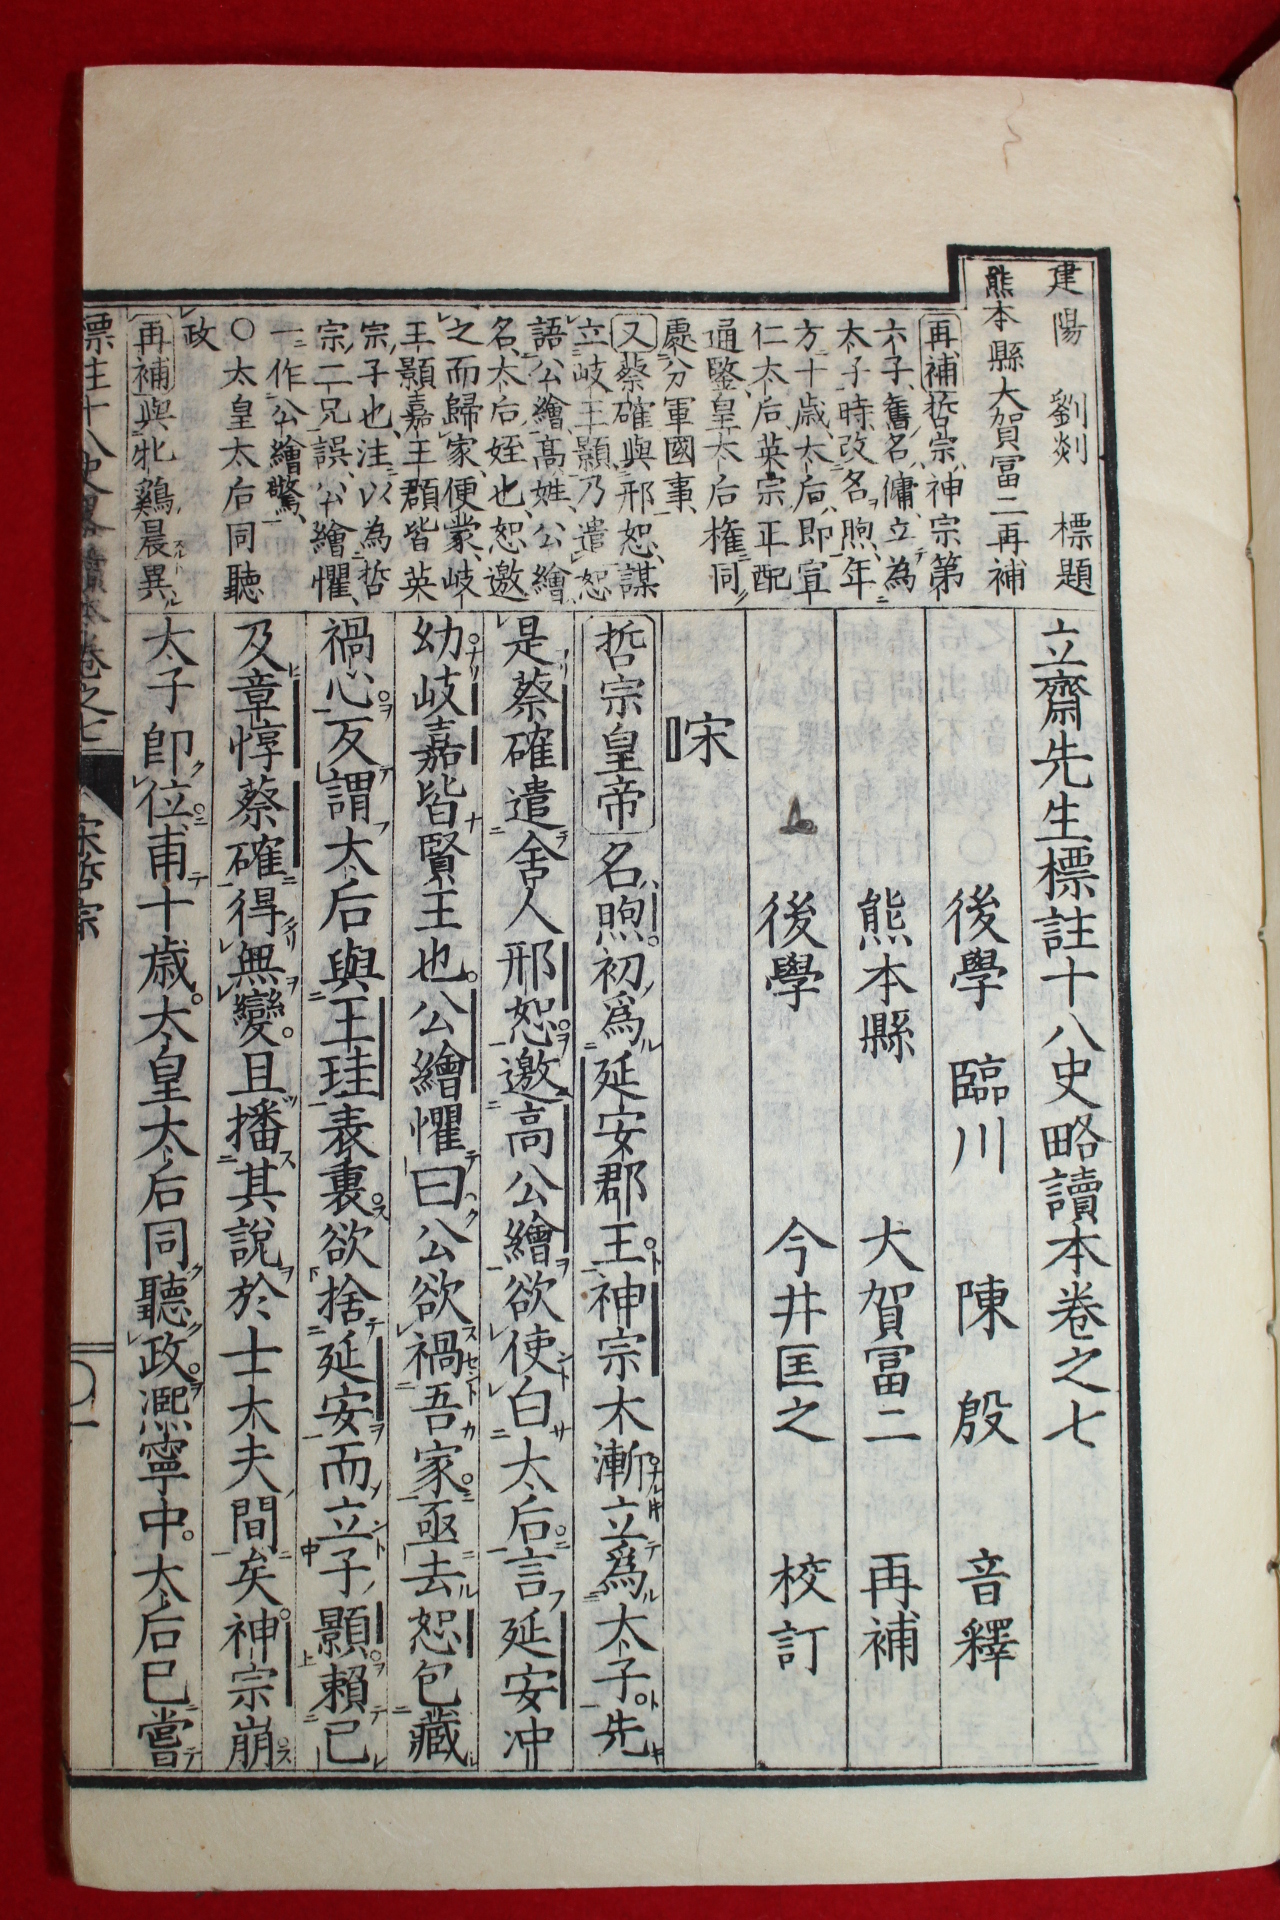 建陽 劉剡 標題
熊本縣大賀冨二再補
再補哲宗神宗第
六子舊名傭立為
太子時改名煦年
方十歳太后即宣
仁太后英宗正配
通鑒皇太后権同
處分軍國事
又蔡確與邢恕謀
立岐王顥乃遣恕
語公繪高姓公繪
名太后姪也恕邀
之而歸家便蒙岐
王顥嘉王頵皆英
宗子也注以為哲
宗二兄誤公繪懼
一作公繪驚
○太皇太后同聽
政
再補與牝鷄晨異
立齋先生標註十八史略讀本卷之七
後學 臨川 陳殷 音釋
熊本縣 大賀冨二 再補
後學 今井匡之 校訂
宋
哲宗皇帝名煦初爲延安郡王神宗大漸立爲太子先
是蔡確遣舍人邢恕邀高公繪欲使白太后言延安冲
幼岐嘉皆賢王也公繪懼曰公欲禍吾家亟去恕包藏
禍心反謂太后與王珪表裏欲捨延安而立子顥賴已
及章惇蔡確得無變且播其說於士大夫間矣神宗崩
太子即位甫十歳太皇太后同聽政熈寧中太后已嘗
標註十八史略讀本卷之七 宋哲宗 一